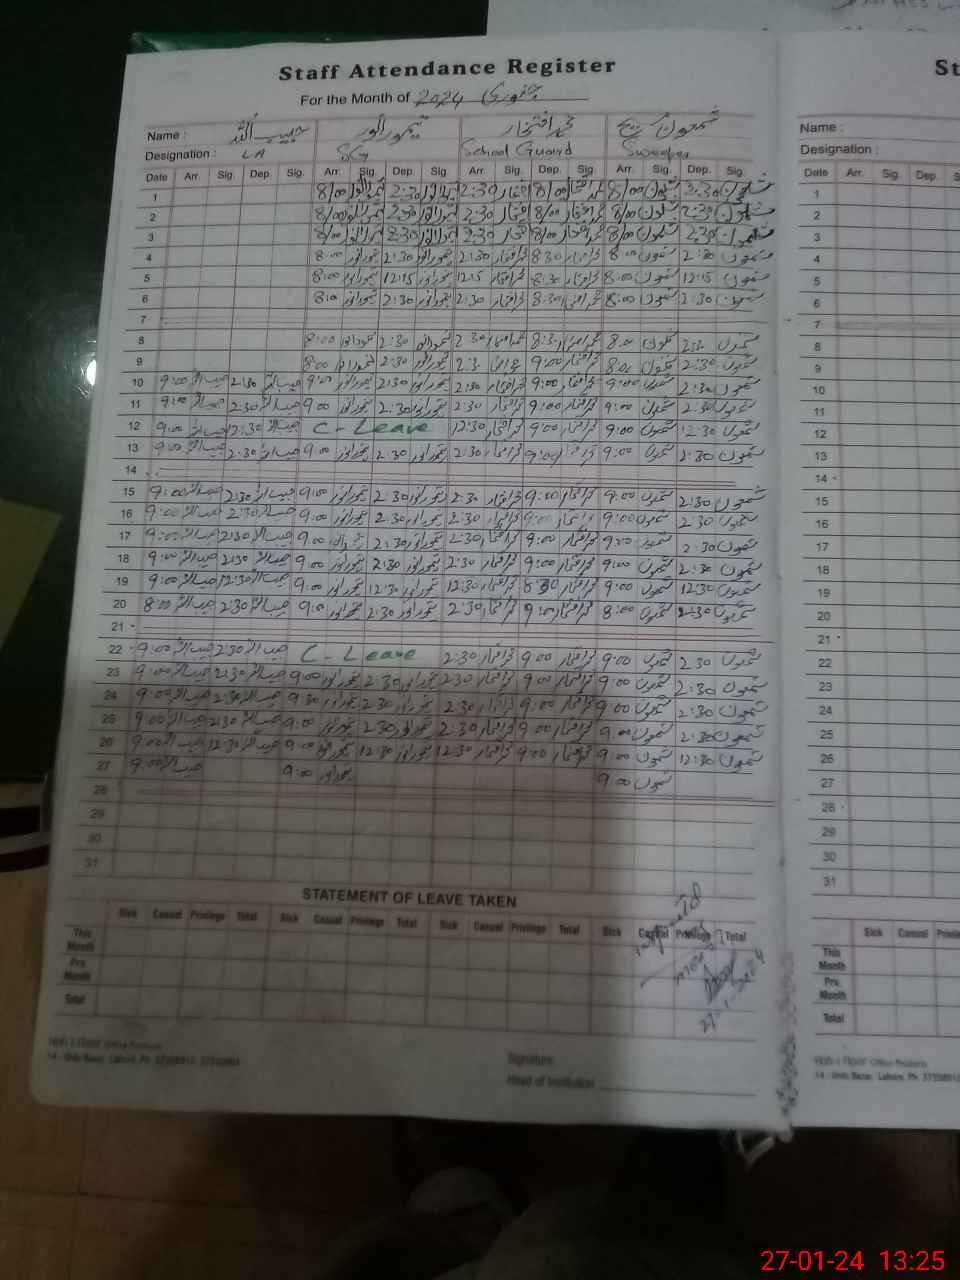 Staff Attendance Register
St
For the Month of جنوری 2024
Name : حبیب اللہ تیمور انور محمد افتخار شمعون مسیح
Name :
Designation : LA SG School Guard Sweeper
Designation :
Date Arr. Sig. Dep. Sig. Arr. Sig. Dep. Sig. Arr. Sig. Dep. Sig. Arr. Sig. Dep. Sig.
Date Arr. Sig. Dep. S
1 8/00 تیمور انور 2:30 تیمور انور 2:30 افتخار 8/00 محمد افتخار 8/00 شمعون 2:30 شمعون
2 8/00 تیمور انور 2:30 تیمور انور 2:30 افتخار 8/00 افتخار 8/00 شمعون 2:30 شمعون
3 8/00 تیمور انور 2:30 تیمور انور 2:30 افتخار 8/00 افتخار 8/00 شمعون 2:30 شمعون
4 8:00 تیمور انور 2:30 تیمور انور 2:30 افتخار 8:30 افتخار 8:00 شمعون 2:30 شمعون
5 8:00 تیمور انور 12:15 تیمور انور 12:15 افتخار 8:30 افتخار 8:00 شمعون 12:15 شمعون
6 تیمور انور 2:30 تیمور انور 2:30 افتخار 8:30 افتخار 8:00 شمعون 2:30 شمعون
7
8 8:00 تیمور انور 2:30 تیمور انور 2:30 افتخار شمعون شمعون
9 8:00 تیمور انور 2:30 تیمور انور افتخار 9:00 افتخار شمعون 2:30 شمعون
10 9:00 حبیب اللہ 2:30 حبیب اللہ تیمور انور 2:30 تیمور انور 2:30 افتخار 9:00 افتخار 9:00 شمعون 2:30 شمعون
11 9:00 حبیب اللہ 2:30 حبیب اللہ 9:00 تیمور انور 2:30 تیمور انور 2:30 افتخار 9:00 افتخار 9:00 شمعون 2:30 شمعون
12 9:00 حبیب اللہ 12:30 حبیب اللہ C-Leave 12:30 افتخار 9:00 افتخار 9:00 شمعون 12:30 شمعون
13 9:00 حبیب اللہ 2:30 حبیب اللہ 9:00 تیمور انور 2:30 تیمور انور 2:30 افتخار 9:00 افتخار 9:00 شمعون 2:30 شمعون
14
15 9:00 حبیب اللہ 2:30 حبیب اللہ 9:00 تیمور انور 2:30 تیمور انور 2:30 افتخار 9:00 افتخار 9:00 شمعون 2:30 شمعون
16 9:00 حبیب اللہ 2:30 حبیب اللہ 9:00 تیمور انور 2:30 تیمور انور 2:30 افتخار 9:00 افتخار 9:00 شمعون 2:30 شمعون
17 9:00 حبیب اللہ 2:30 حبیب اللہ 9:00 تیمور انور 2:30 تیمور انور 2:30 افتخار 9:00 افتخار 9:00 شمعون 2:30 شمعون
18 9:00 حبیب اللہ 2:30 حبیب اللہ 9:00 تیمور انور 2:30 تیمور انور 2:30 افتخار 9:00 افتخار 9:00 شمعون 2:30 شمعون
19 9:00 حبیب اللہ 12:30 حبیب اللہ 9:00 تیمور انور 12:30 تیمور انور 12:30 افتخار 8:30 افتخار 9:00 شمعون 12:30 شمعون
20 8:00 حبیب اللہ 2:30 حبیب اللہ تیمور انور 2:30 تیمور انور 2:30 افتخار 9:00 افتخار 8:00 شمعون 2:30 شمعون
21
22 9:00 حبیب اللہ 2:30 حبیب اللہ C-Leave 2:30 افتخار 9:00 افتخار 9:00 شمعون 2:30 شمعون
23 9:00 حبیب اللہ 2:30 حبیب اللہ 9:00 تیمور انور 2:30 تیمور انور 2:30 افتخار 9:00 افتخار 9:00 شمعون 2:30 شمعون
24 9:00 حبیب اللہ 2:30 حبیب اللہ 9:30 تیمور انور 2:30 تیمور انور 2:30 افتخار 9:00 افتخار 9:00 شمعون 2:30 شمعون
25 9:00 حبیب اللہ 2:30 حبیب اللہ 9:00 تیمور انور 2:30 تیمور انور 2:30 افتخار 9:00 افتخار 9:00 شمعون 2:30 شمعون
26 9:00 حبیب اللہ 12:30 حبیب اللہ 9:00 تیمور انور 12:30 تیمور انور 12:30 افتخار 9:00 افتخار 9:00 شمعون 12:30 شمعون
27 9:00 حبیب اللہ 9:00 تیمور انور 9:00 شمعون
28
29
30
31
1
2
3
4
5
6
7
8
9
10
11
12
13
14
15
16
17
18
19
20
21
22
23
24
25
26
27
28
29
30
31
STATEMENT OF LEAVE TAKEN
Sick Casual Privilege Total Sick Casual Privilege Total Sick Casual Privilege Total Sick Casual Privilege Total
Sick Casual Privile
This Month
Prv. Month
Total
This Month
Prv. Month
Total
Signature
Head of Institution
27-01-24 13:25